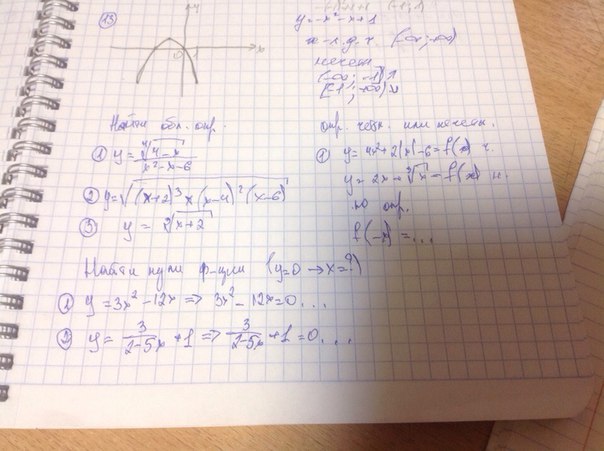 13
y
x
0
y=-x²-x+1
(-∞; +∞)
нечет
(-∞; -1] ↗
[-1; +∞) ↘
Найти обл. опр.
① y = ∜(4-x) / (x²-x-6)
② y = √((x+2)³ x (x-4)² (x-6))
③ y = √(x+2)
опр. четн. или нечетн.
① y = 4x²+2|x|-6 = f(x) ч.
y = 2x + ∛x = f(x) н.
по опр.
f(-x) = ...
Найти нули ф-ции (y=0 → x=?)
① y = 3x²-12x => 3x²-12x=0 ...
② y = 3/(2-5x) + 1 => 3/(2-5x) + 1 = 0 ...